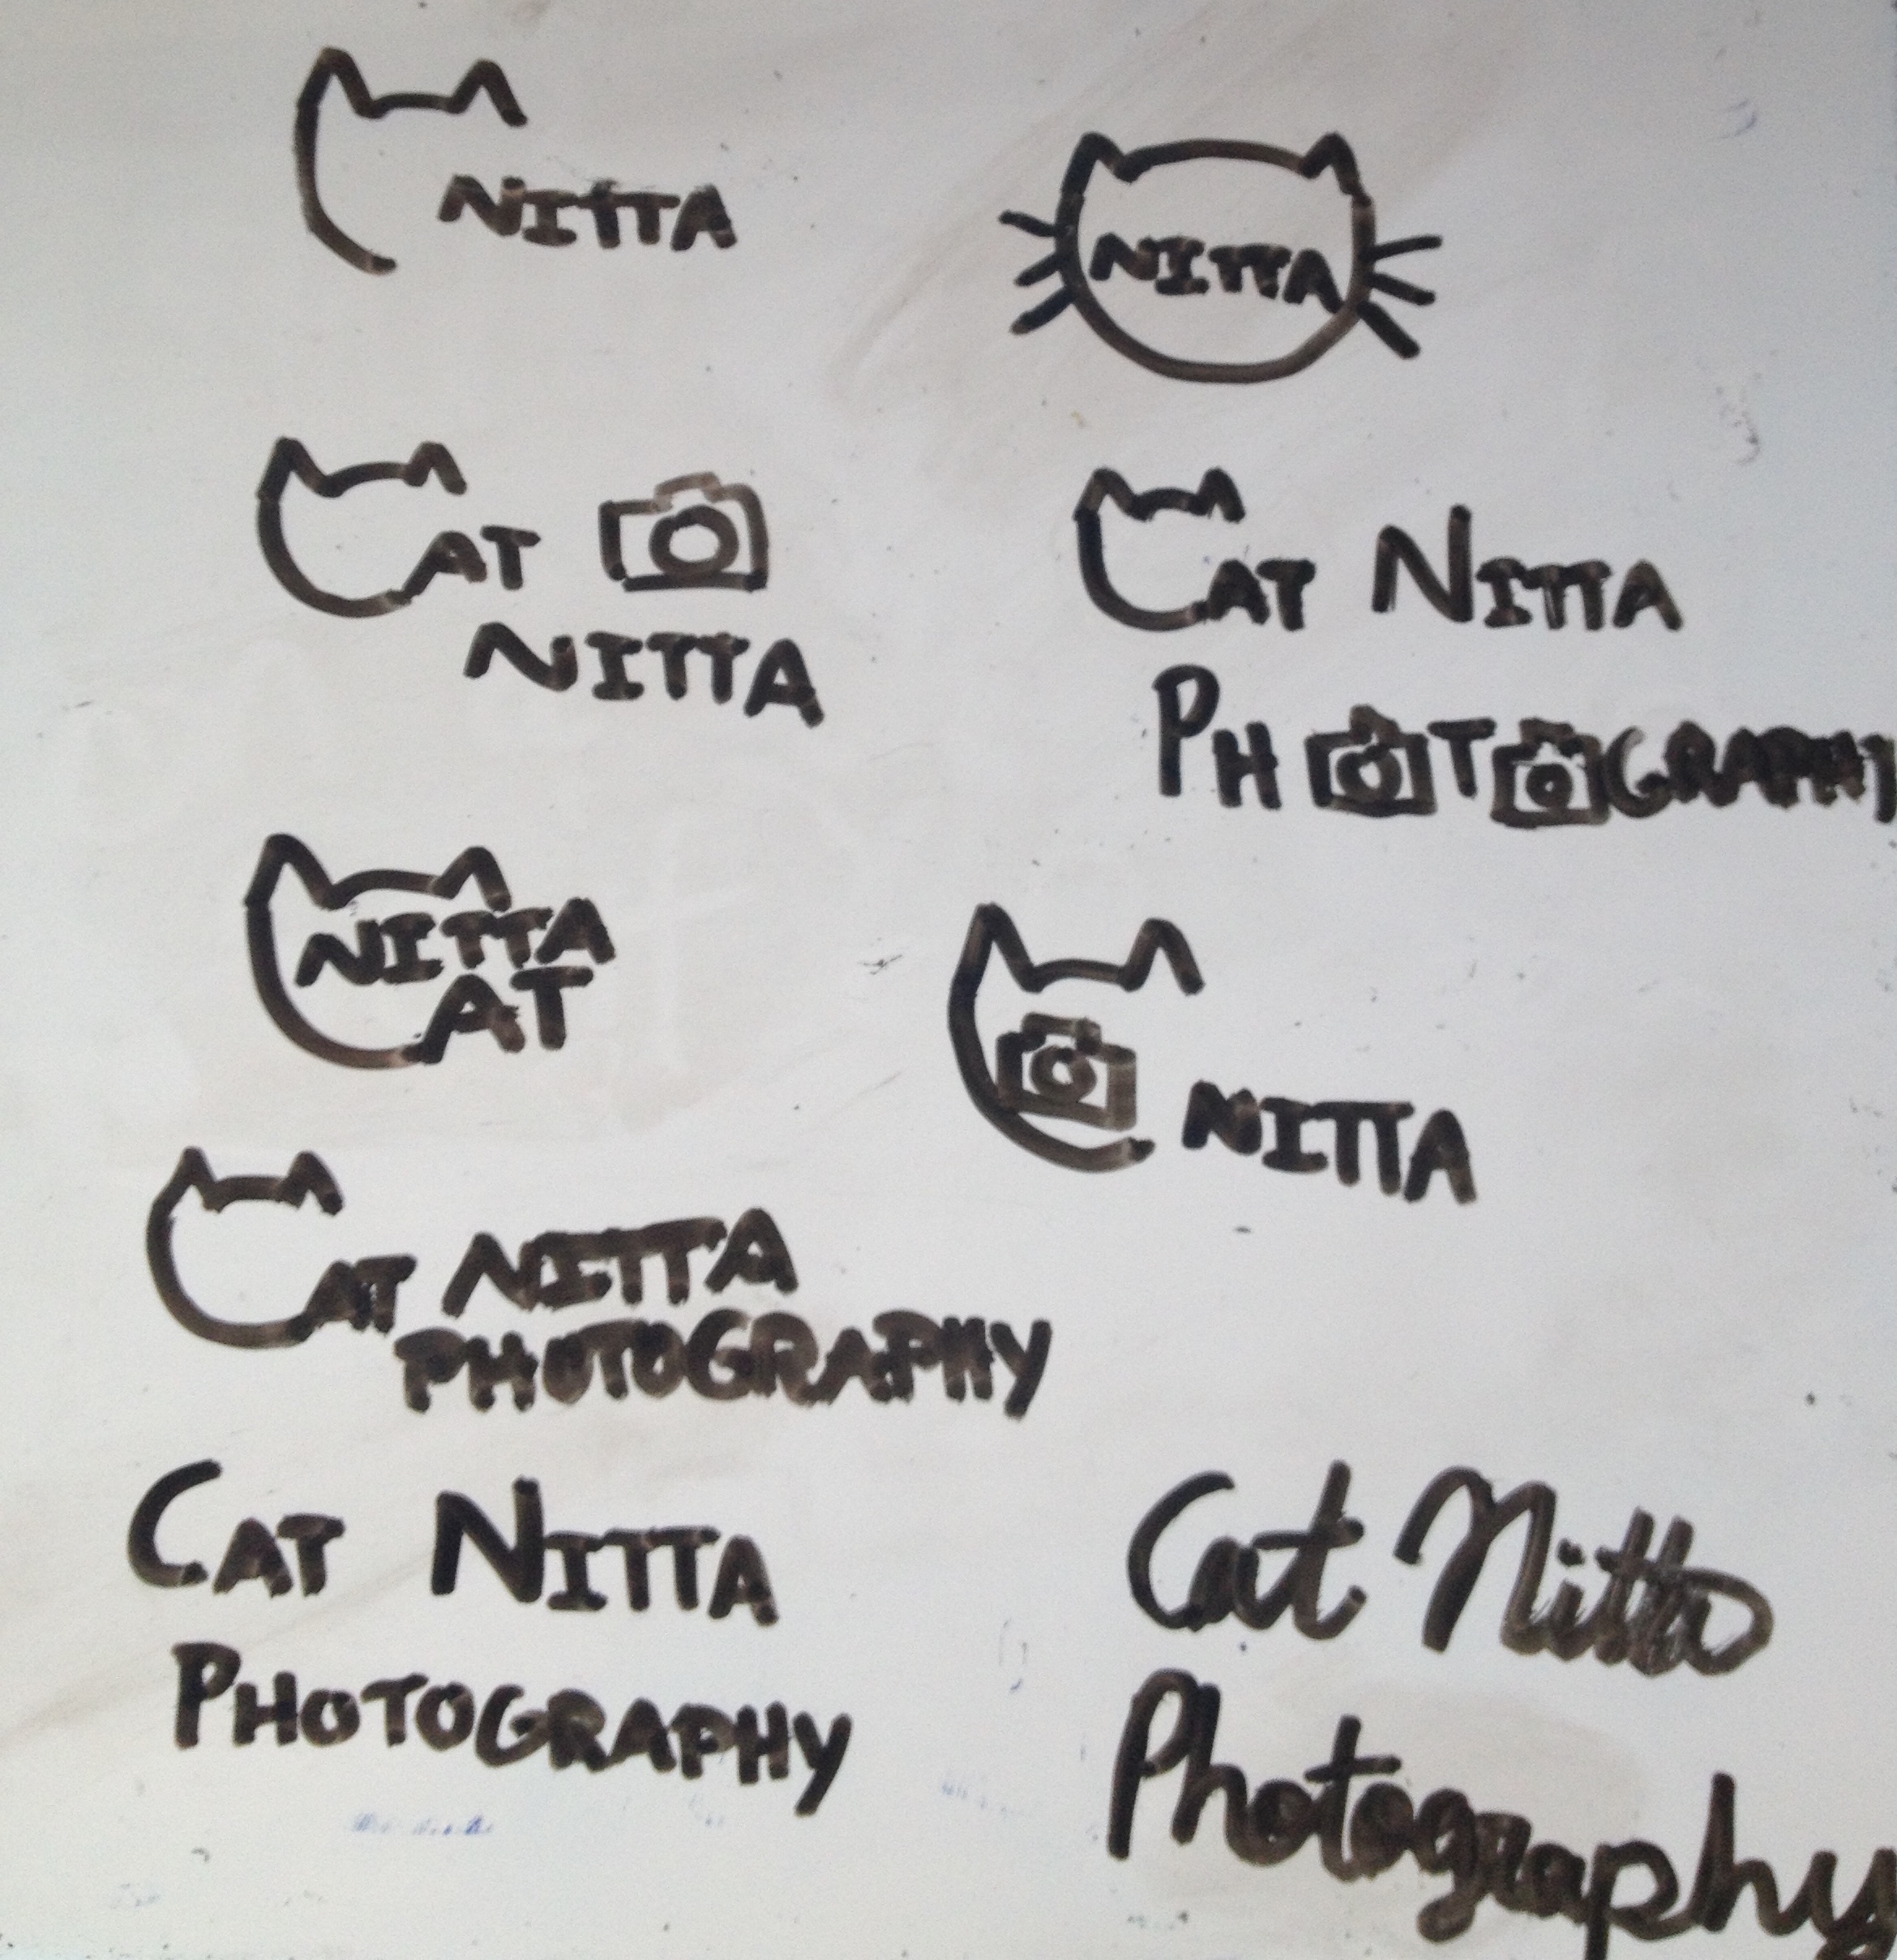 NITTA
NITTA
CAT
NITTA
CAT NITTA
PHOTOGRAPHY
NITTA
CAT
NITTA
CAT NITTA
PHOTOGRAPHY
CAT NITTA
PHOTOGRAPHY
Cat Nitta
Photography